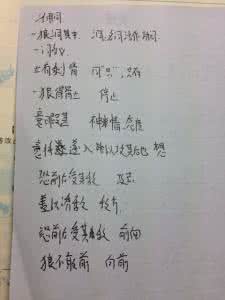 狼洞其中 洞:名词活作动词
一词多义
止有剩骨 同"只",只有
一狼得骨止 停止
意暇甚 神情态度
意将遂入隧以攻其后也 想
恐前后受其敌 攻击
盖以诱敌 敌方
恐前后受其敌 前面
狼不敢前 向前